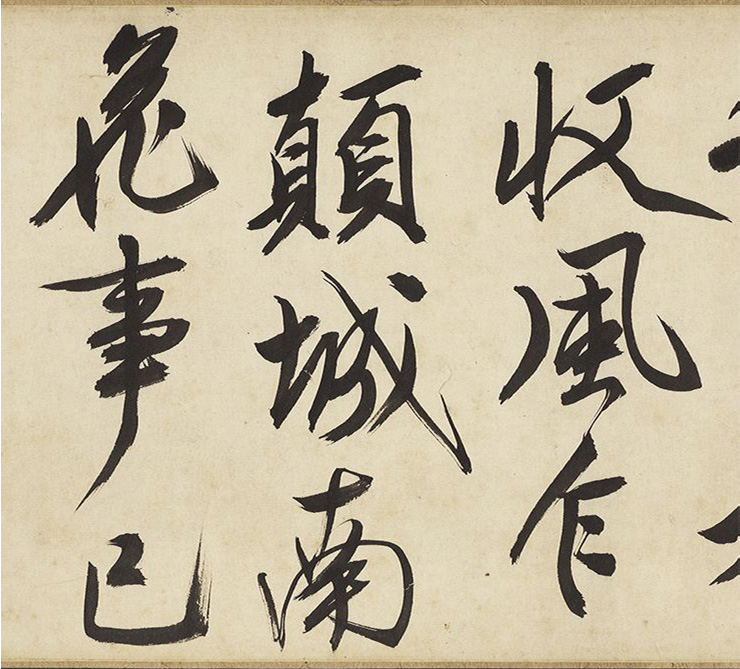 收風乍
顛城南
花事已